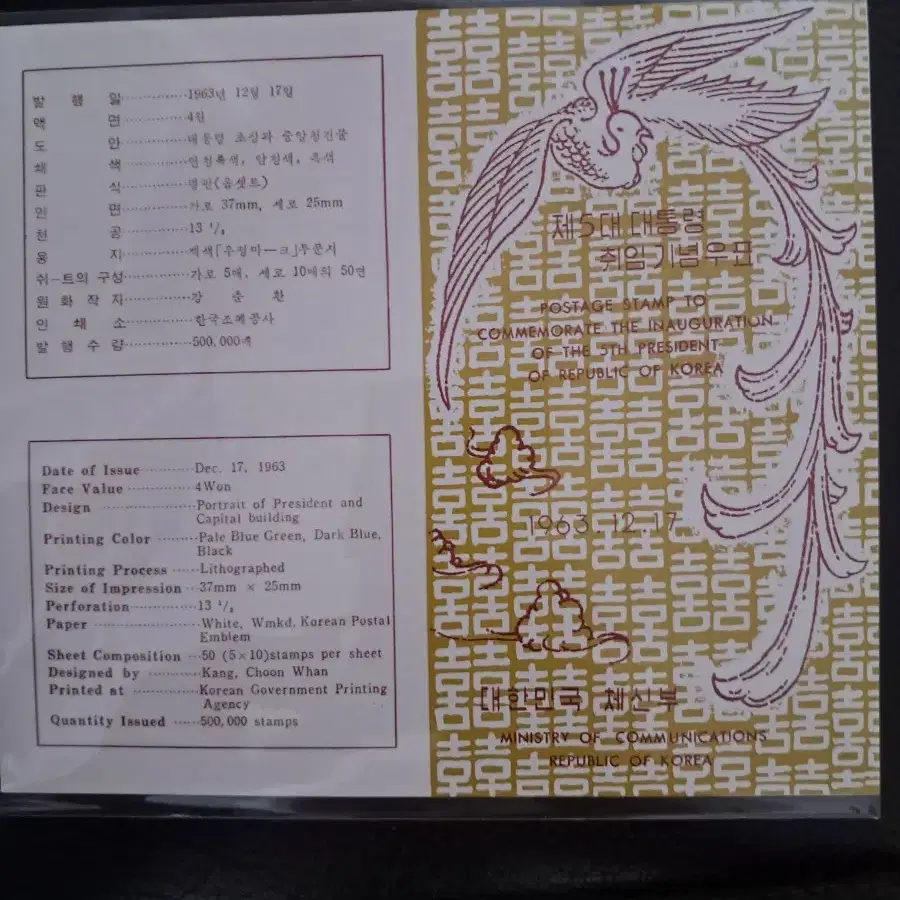 발 행 일 ············· 1963년 12월 17일
액 면 ············· 4원
도 안 ············· 대통령 초상과 중앙청건물
쇄 색 ············· 연청록색, 암청색, 흑색
판 식 ············· 평판(옵셋트)
인 면 ············· 가로 37mm, 세로 25mm
천 공 ············· 13 ½
용 지 ············· 백색「우정마—크」투문지
쉬-트의 구성 ············· 가로 5매, 세로 10매의 50면
원 화 작 자 ············· 강 춘 환
인 쇄 소 ············· 한국조폐공사
발 행 수 량 ············· 500,000매
Date of Issue ··········· Dec. 17, 1963
Face Value ············· 4Won
Design ··················· Portrait of President and
Capital building
Printing Color ········ Pale Blue Green, Dark Blue,
Black
Printing Process ····· Lithographed
Size of Impression ·· 37mm × 25mm
Perforation ············· 13 ½
Paper ····················· White, Wmkd, Korean Postal
Emblem
Sheet Composition ··· 50 (5×10)stamps per sheet
Designed by ············ Kang, Choon Whan
Printed at ·············· Korean Government Printing
Agency
Quantity Issued ······ 500,000 stamps
제5대 대통령
취임기념우표
POSTAGE STAMP TO
COMMEMORATE THE INAUGURATION
OF THE 5TH PRESIDENT
OF REPUBLIC OF KOREA
1963.12.17
대한민국 체신부
MINISTRY OF COMMUNICATIONS
REPUBLIC OF KOREA